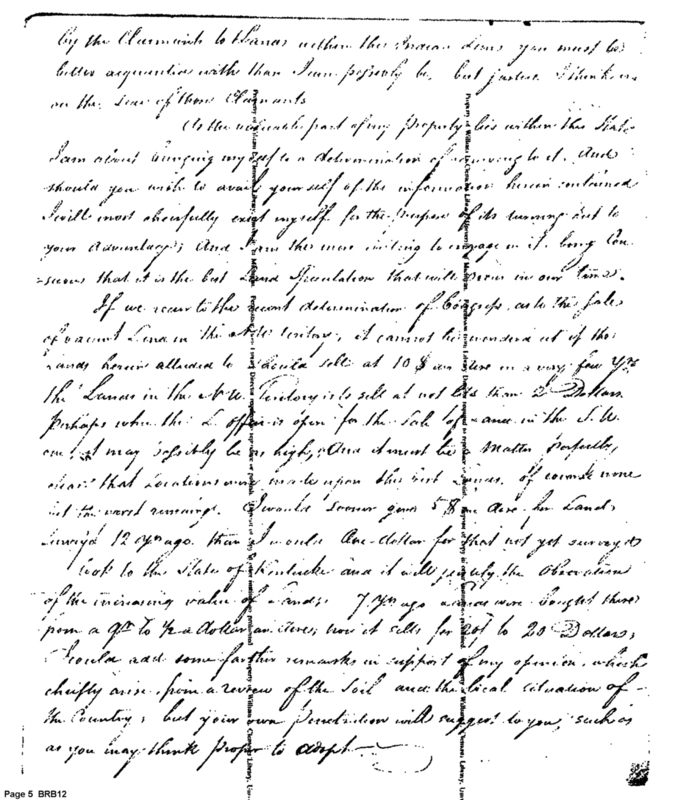 by the Claimants to Lands within the Indian Lines you must be
better acquainted with than I can possibly be, but justice I think is
on the side of those Claimants
As the valuable part of my Property lies within this State
I am about bringing myself to a determination of removing to it. And
should you wish to avail yourself of the information herein contained
I will most chearfully exert myself for the purpose of its turning out to
your Advantage; And I am the more willing to engage in it. being Con-
-scious that it is the best Land Speculation that will occur in our times.
If we recur to the recent determination of Congress, as to the sales
of vacant Land in the territory, it cannot be wondered at if the
Lands herein alluded to should sell at 10 $ an Acre in a very few Yrs
the Lands in the N W Territory is to sell at not less than 2 Dollars
perhaps when the L. office is open for the sale of Lands in the S. W.
one, it may possibly be as high, And it must be a Matter perfectly
clear that Locations were made upon the best Lands, of course none
but the worst remains. I would sooner give 5 $ an Acre for Lands
surveyd 12 yrs ago than I would One dollar for that not yet surveyd
Look to the State of Kentucke and it will justify the Observation
of the increasing value of Lands, 7 Yrs ago Lands were bought there
from a qr to 1/2 a dollar an Acre; now it sells for to 20 Dollars;
I could add some farther remarks in support of my opinion, which
chiefly arise from a review of the Soil and the local situation of
the Country, but your own Penetration will suggest to you, such as
as you may think proper to adopt
Page 5 BRB12